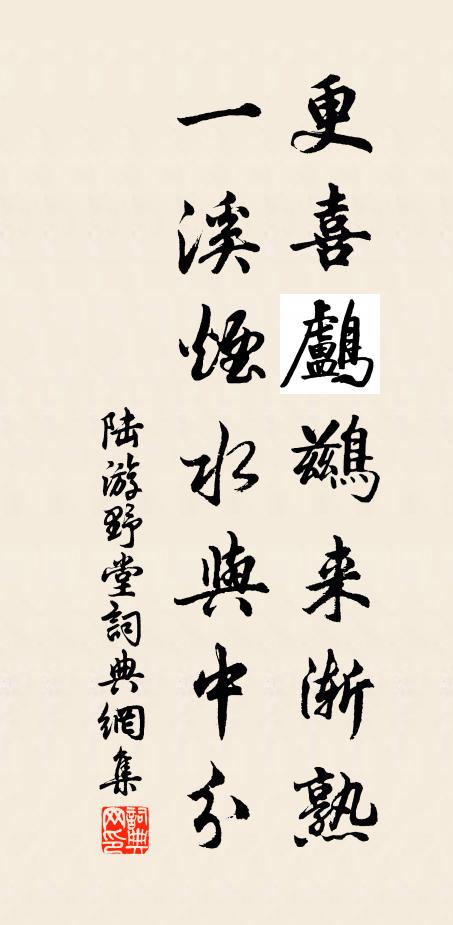 更喜鸕鷀来渐熟
一溪煙水與中分
陆游野堂詞典網集
詞典网印